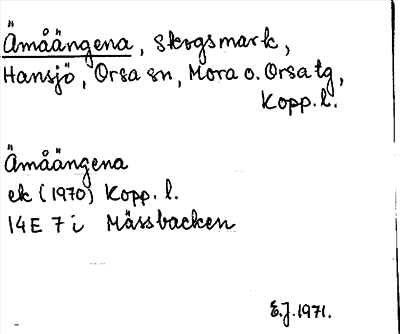 Ämåängena, Skogsmark,
Hansjö, Orsa sn, Mora o. Orsa tg,
Kopp. l.
Ämåängena
ek (1970) Kopp. l.
14E 7i Mässbacken
E.J. 1971.